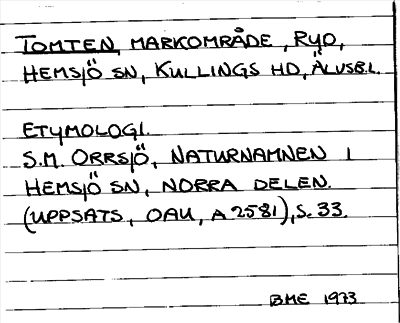 TOMTEN, MARKOMRÅDE, RYD,
HEMSJÖ SN, KULLINGS HD, ÄLVSB.L.
ETYMOLOGI.
S.M. ORRSJÖ, NATURNAMNEN I
HEMSJÖ SN, NORRA DELEN.
(UPPSATS, OAU, A 2581), S. 33.
BME 1973